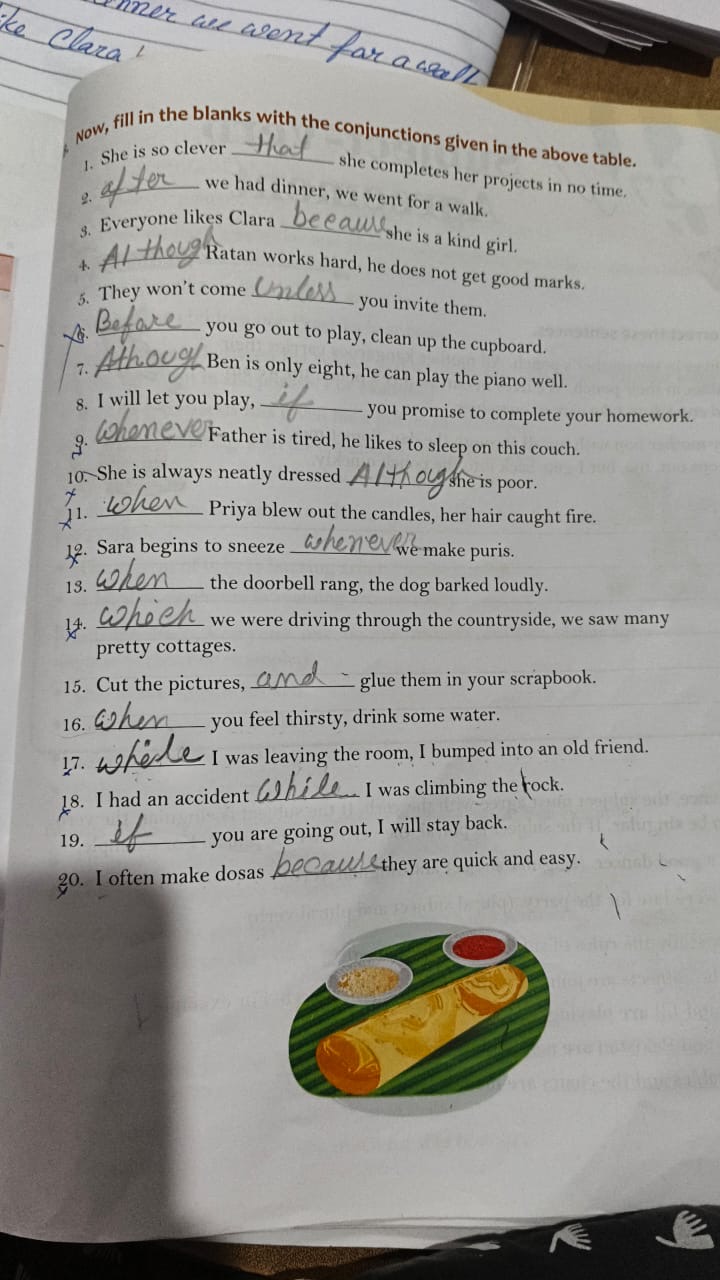 nner we went for a walk
ke Clara!
Now, fill in the blanks with the conjunctions given in the above table.
1. She is so clever that she completes her projects in no time.
2. after we had dinner, we went for a walk.
3. Everyone likes Clara beeause she is a kind girl.
4. Although Ratan works hard, he does not get good marks.
5. They won't come Unless you invite them.
6. Before you go out to play, clean up the cupboard.
7. Athough Ben is only eight, he can play the piano well.
8. I will let you play, if you promise to complete your homework.
9. Whenever Father is tired, he likes to sleep on this couch.
10. She is always neatly dressed Although she is poor.
11. when Priya blew out the candles, her hair caught fire.
12. Sara begins to sneeze whenever we make puris.
13. when the doorbell rang, the dog barked loudly.
14. which we were driving through the countryside, we saw many
pretty cottages.
15. Cut the pictures, and glue them in your scrapbook.
16. when you feel thirsty, drink some water.
17. while I was leaving the room, I bumped into an old friend.
18. I had an accident While I was climbing the rock.
19. if you are going out, I will stay back.
20. I often make dosas because they are quick and easy.